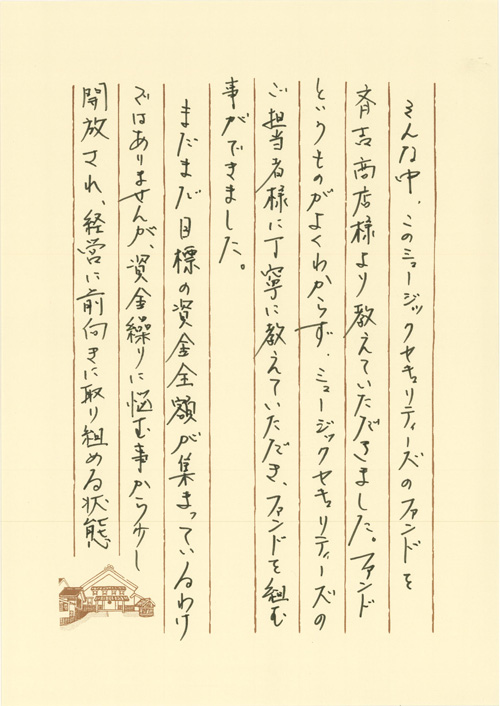 そんな中、このミュージックセキュリティーズのファンドを
斉吉商店様より教えていただきました。ファンド
というものがよくわからず、ミュージックセキュリティーズの
ご担当者様に丁寧に教えていただき、ファンドを組む
事ができました。
まだまだ目標の資金全額が集まっているわけ
ではありませんが、資金繰りに悩む事から少し
開放され、経営に前向きに取り組める状態